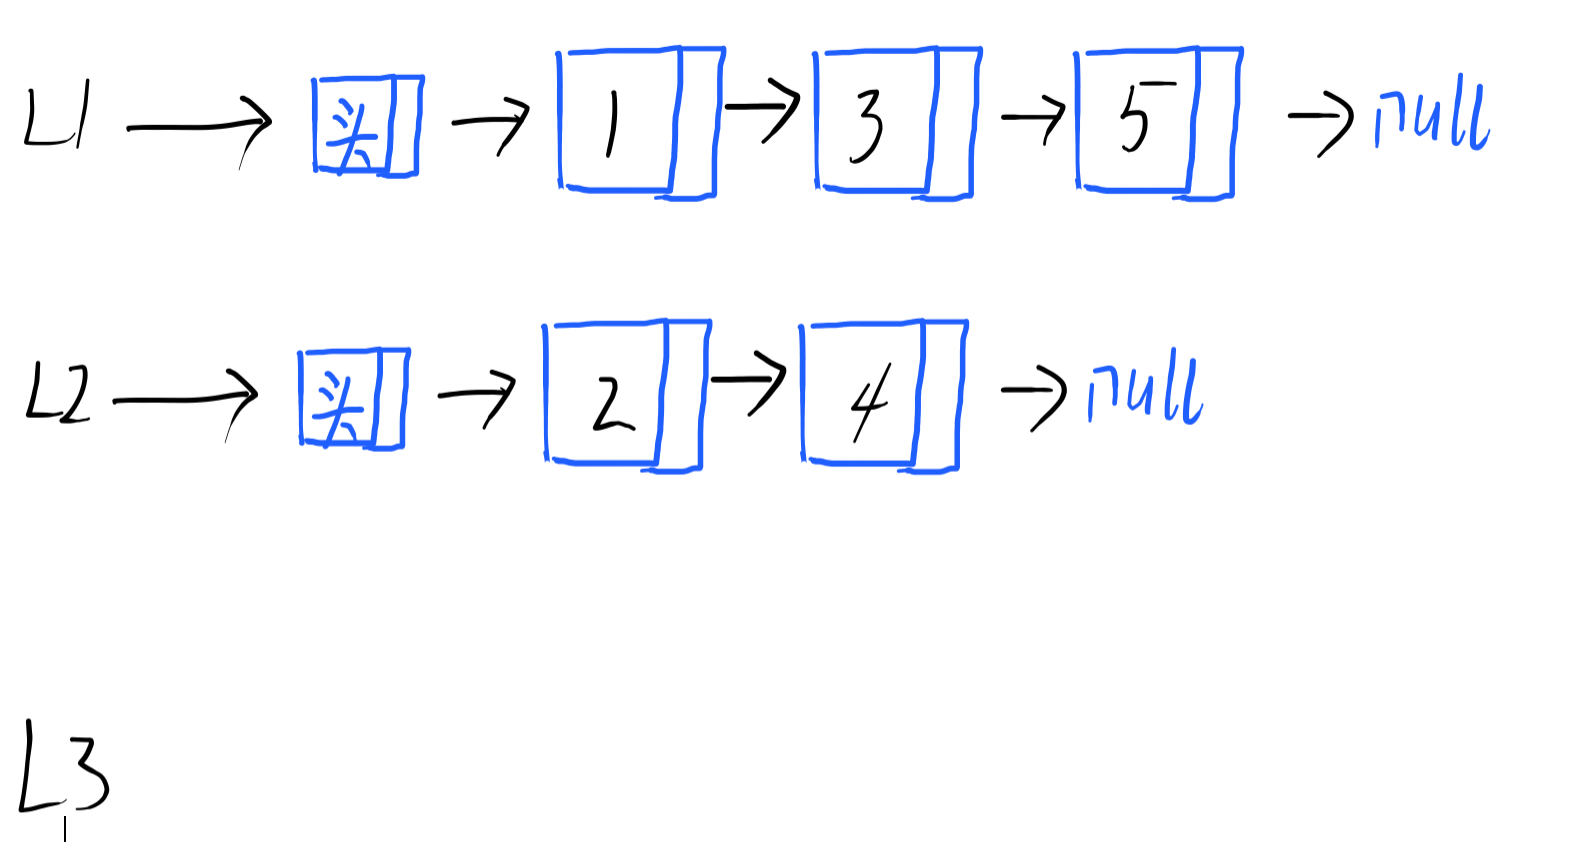 L1 头 1 3 5 null
L2 头 2 4 null
L3